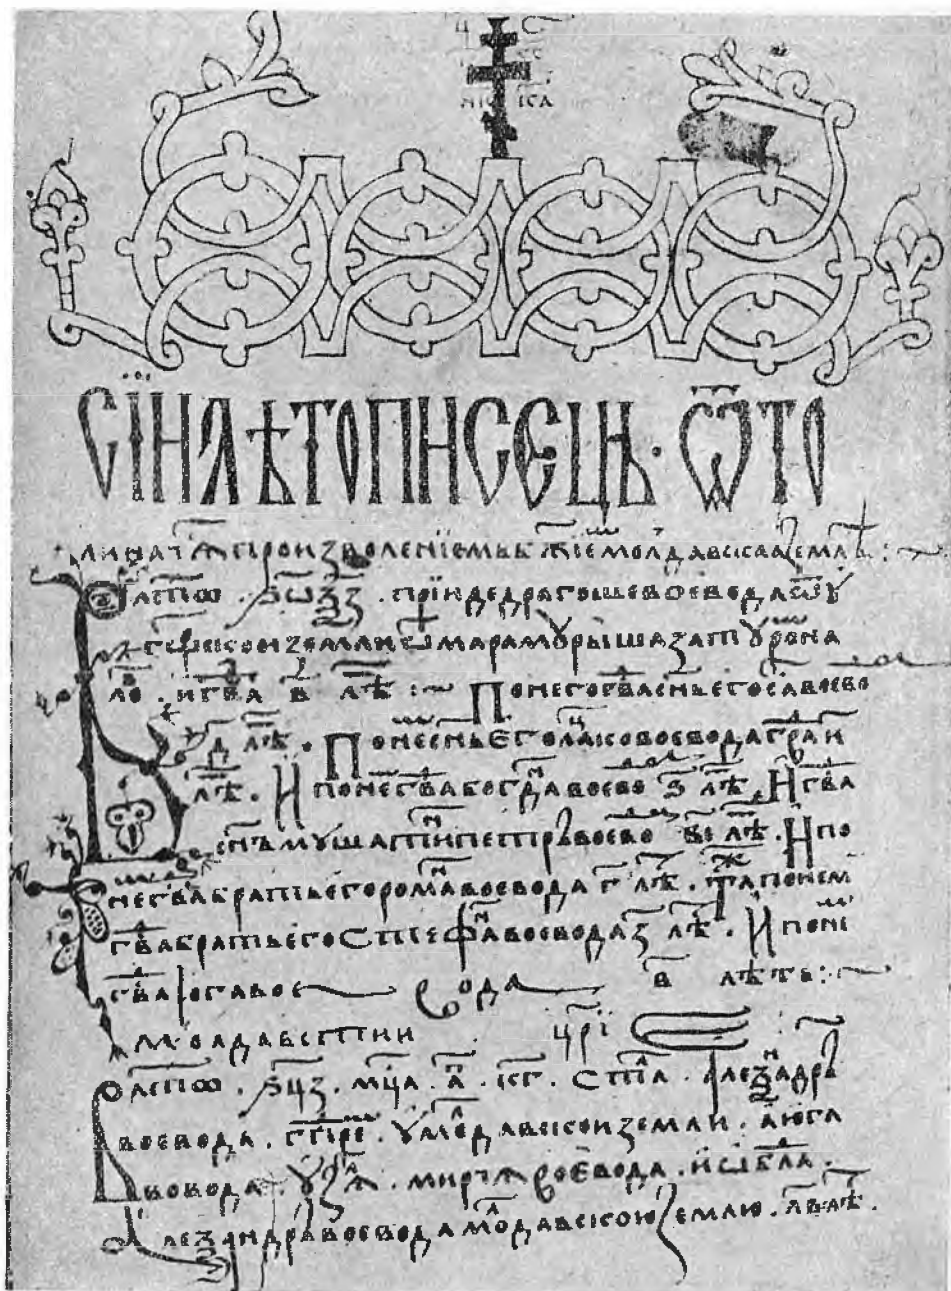 Ц С
НИ КА
СІИ ЛѢТОПИСЕЦЬ · ѾТО
ЛИ НАЧѦ ПРОИЗВОЛЕНІЕМЬ Б҃ЖІЕМ МОЛДАВСКАА ЗЕМЛѢ :~
В ЛѢТѠ ҂ЅѠ҃ѮЗ · ПРІИДЕ ДРАГОШЕ ВОЕВОДА Ѿ У
ГѠРСКОИ ЗЕМЛИ Ѿ МАРАМУРЫША ЗА ТУРОНА
ЛО · И Г҃ВА В҃ ЛѢ :~ ПО НЕГО Г҃ВА СН҃Ь ЕГО САС ВОЕВО
Д҃ ЛѢ · ПО НЕ СН҃Ь ЕГО ЛАЦКО ВОЕВОДА Г҃ВА И҃
ЛѢ · И ПО НЕ Г҃ВА БОГДАН ВОЕВО Ѕ҃ ЛѢ · И Г҃ВА
СН҃Ъ МУШАТИН ПЕТРЪ ВОЕВО В҃І ЛѢ · И ПО
НЕ Г҃ВА БРАТЬ ЕГО РОМАН ВОЕВОДА Г҃ ЛѢ · ТАЖ ПО НЕМ
Г҃ВА БРАТЬ ЕГО СТЕФАН ВОЕВОДА З҃ ЛѢ · И ПО НЕ
Г҃ВА ЮГА ВОЕ ВОДА В҃ ЛѢТѢ :~
МОЛДАВСТИИ ЦР҃І :~
В ЛѢТѠ · ҂ЅЦ҃З · МЦ҃А · А҃П · К҃Г · СТА · АЛЕѮАНДРЬ
ВОЕВОДА · ГПРЕ · У МОЛДАВСКОИ ЗЕМЛИ · А ЮГА
ВОВОДА · УЗѦЛ · МИРЧѦ ВОЕВОДА · И ѠБЛА ·
АЛЕѮАНДРЬ ВОЕВОДА МОЛДАВСКОЮ ЗЕМЛЮ · Л҃В ЛѢ ·